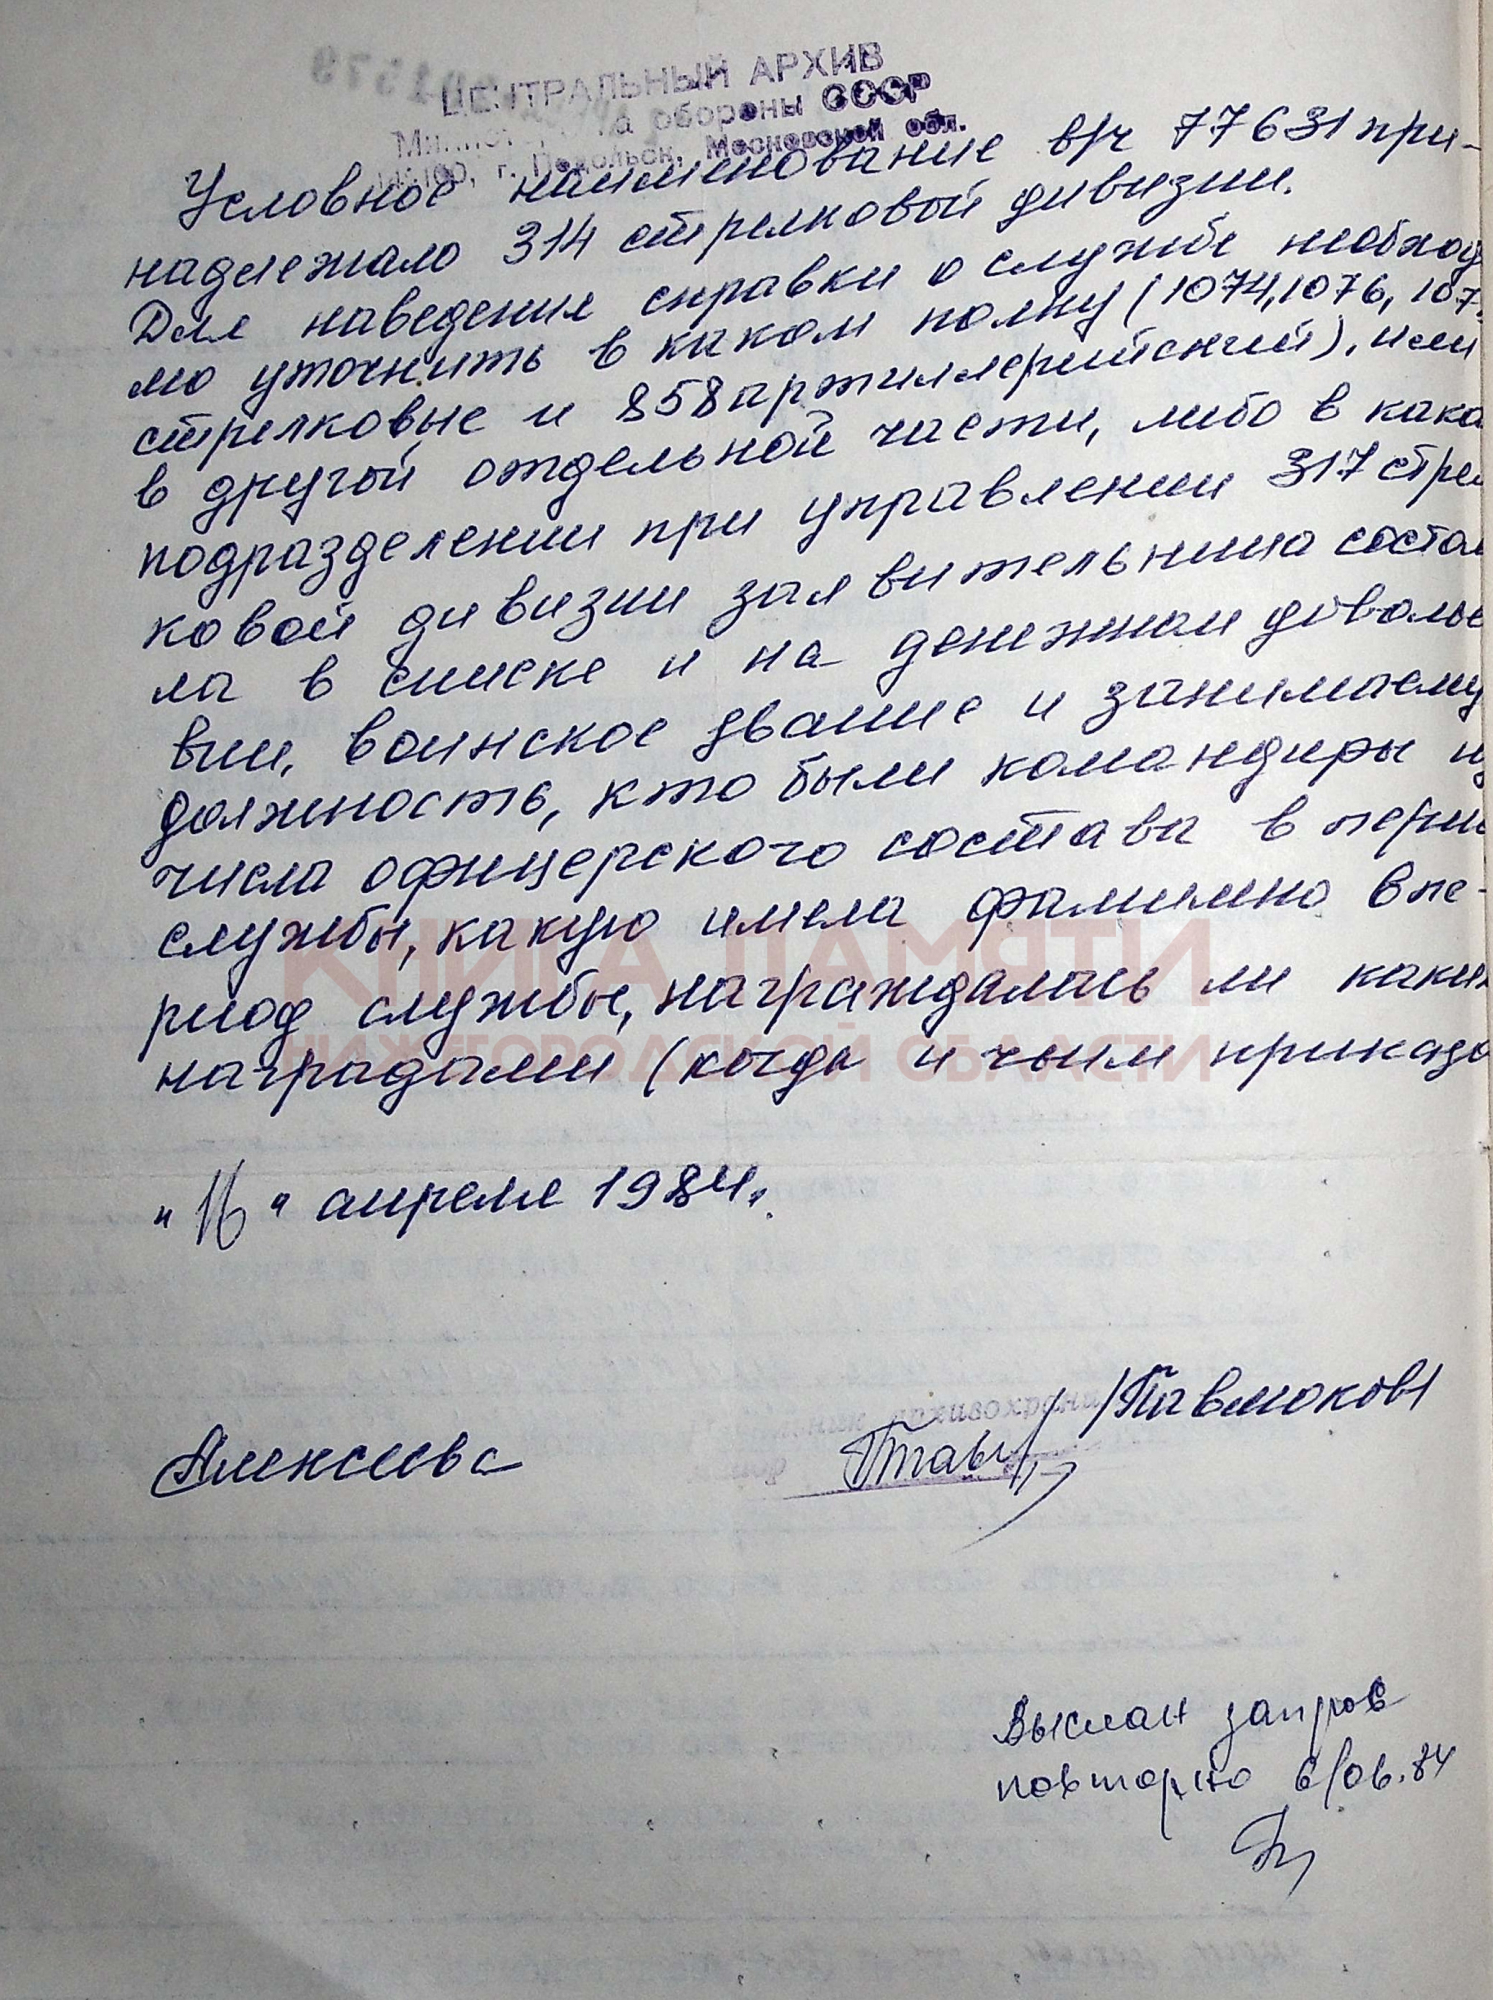 ЦЕНТРАЛЬНЫЙ АРХИВ
обороны СССР
г. Подольск, Московской обл.
Условное наименование в/ч 77631 при-
надлежало 314 стрелковой дивизии.
Для наведения справки о службе необход
мо уточнить в каком полку (1074, 1076, 107
стрелковые и 858 артиллерийский), или
в другой отдельной части, либо в како
подразделении при управлении 317 стрел
ковой дивизии заявительница состоя
ла в списке и на денежном довольс
вии, воинское звание и занимаему
должность, кто были командиры из
числа офицерского состава в пери
службы, какую имела фамилию в пе-
риод службы, награждалась ли каким
наградами (когда и чьим приказо
"16" апреля 1984.
Алексеева
/Павлюков/
Выслан запрос
повторно 6/06.84
КНИГА ПАМЯТИ
НИЖЕГОРОДСКОЙ ОБЛАСТИ